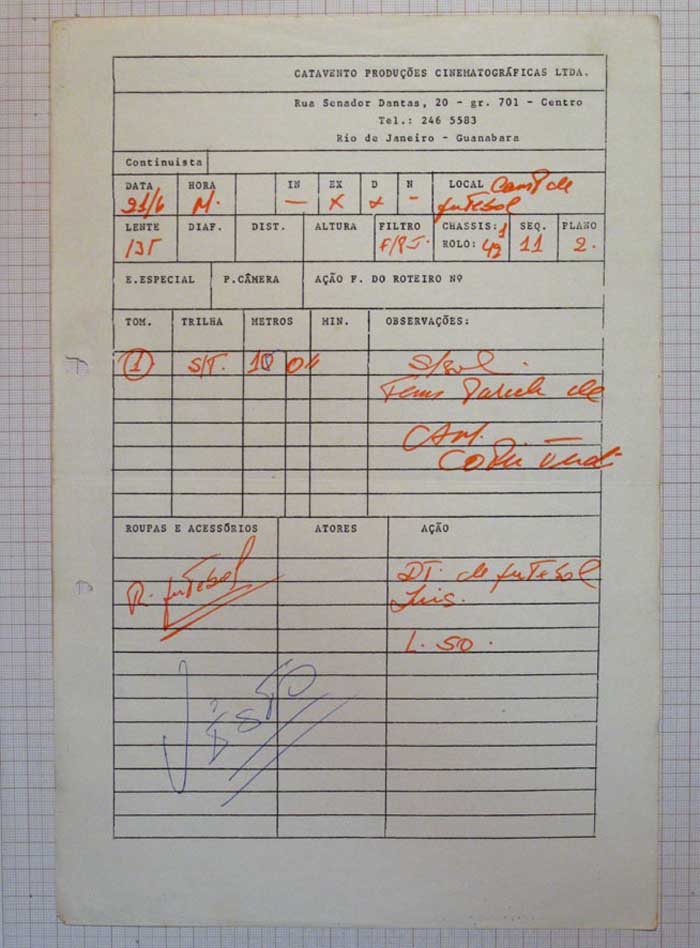 CATAVENTO PRODUÇÕES CINEMATOGRÁFICAS LTDA.
Rua Senador Dantas, 20 - gr. 701 - Centro
Tel.: 246 5583
Rio de Janeiro - Guanabara
Continuista
DATA HORA IN EX D N LOCAL Campo de
M. — X x - futebol
LENTE DIAF. DIST. ALTURA FILTRO CHASSIS: 1 SEQ. PLANO
135 ROLO: 42 11 2.
E.ESPECIAL P.CÂMERA AÇÃO F. DO ROTEIRO Nº
TOM. TRILHA METROS MIN. OBSERVAÇÕES:
1 S/T. 10 04
de
CAM.
ROUPAS E ACESSÓRIOS ATORES AÇÃO
R. futebol DT. de futebol
L. 50.
VISTO